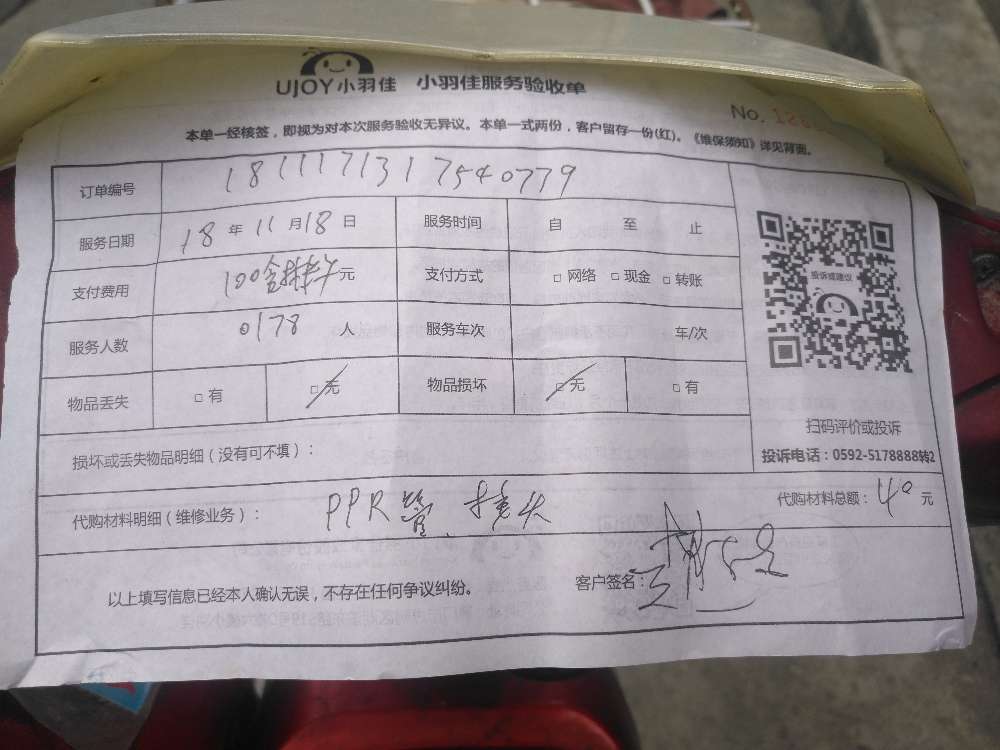 UJOY小羽佳 小羽佳服务验收单
No. 12
本单一经核签，即视为对本次服务验收无异议。本单一式两份，客户留存一份(红)。《维保须知》详见背面。
订单编号 1811171317540779
服务日期 18年11月18日 服务时间 自 至 止
支付费用 100含材料 元 支付方式 □网络 □现金 □转账
服务人数 0178 人 服务车次 车/次
物品丢失 □有 □无 物品损坏 □无 □有
投诉或建议
扫码评价或投诉
投诉电话：0592-5178888转2
损坏或丢失物品明细（没有可不填）：
代购材料明细（维修业务）： PPR管、接头 代购材料总额：40元
以上填写信息已经本人确认无误，不存在任何争议纠纷。 客户签名：